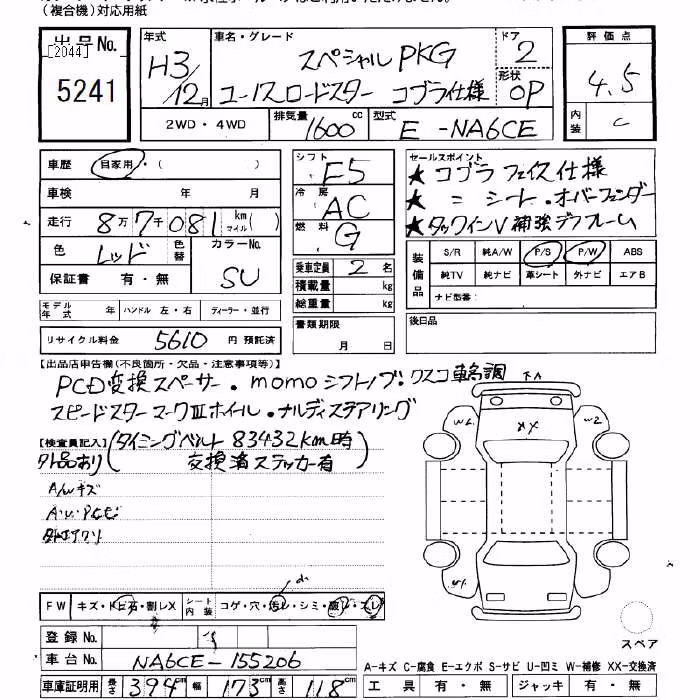 (複合機)対応用紙
出品No.
[2044]
5241
年式
H3/12月
車名・グレード
スペシャルPKG
ユーノスロードスター コブラ仕様
ドア
2
形状
OP
評価点
4.5
内装
C
2WD・4WD
排気量 1600 cc
型式 E-NA6CE
車歴 自家用・( )
車検 年 月
走行 8万7千081 km マイル( )
色 レッド
色替
カラーNo.
SU
保証書 有・無
シフト F5
冷房 AC
燃料 G
乗車定員 2 名
積載量 kg
総重量 kg
セールスポイント
★コブラフェイス仕様
★ 〃 シート・オーバーフェンダー
★タックインV補強デフレーム
装備品
S/R 純A/W P/S P/W ABS
純TV 純ナビ 革シート 外ナビ エアB
ナビ型番:
モデル年式 年 ハンドル 左・右 ディーラー・並行
リサイクル料金 5610 円 預託済
書類期限
月 日
後日品
【出品店申告欄(不良箇所・欠品・注意事項等)】
PCD変換スペーサー・momoシフトノブ・クスコ車高調
スピードスターマークⅢホイール・ナルディステアリング
【検査員記入】(タイミングベルト 83432km時
外品あり 交換済ステッカー有)
A/Wキズ
下A
W2
XX
W2
W1
FW キズ・トビ石・割レX
シート内装 コゲ・穴・汚レ・シミ・破レ・スレ
登録No.
車台No. NA6CE-155206
車庫証明用 長さ 394cm 幅 173cm 高さ 118cm
スペア
A-キズ C-腐食 E-エクボ S-サビ U-凹ミ W-補修 XX-交換済
工具 有・無 ジャッキ 有・無